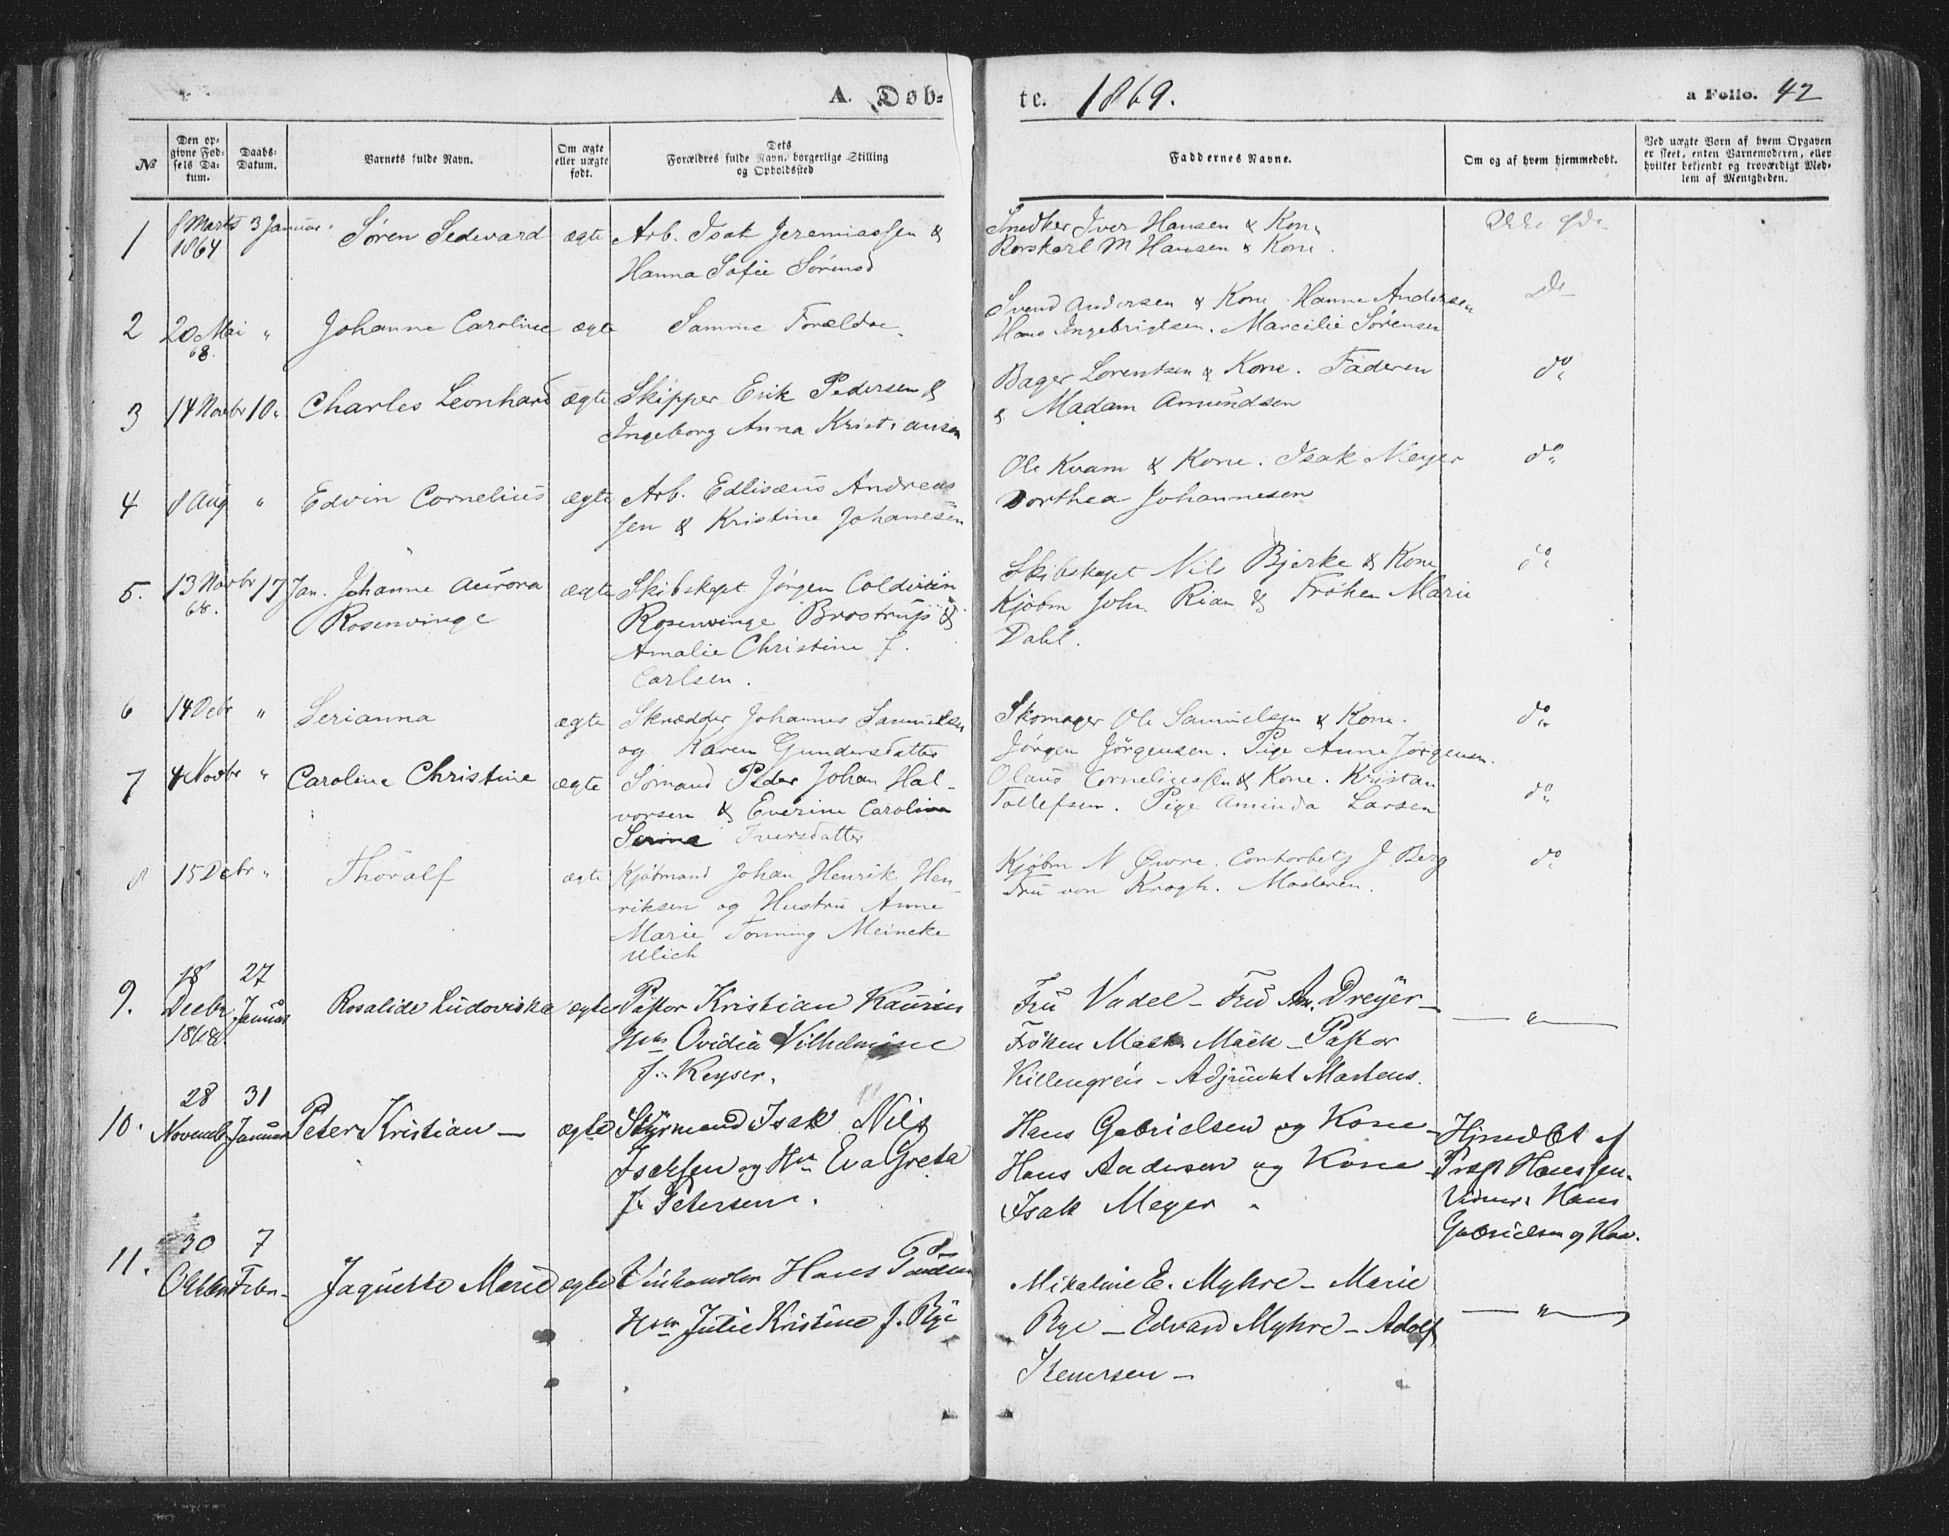 A. Døb=
te. 1869.
a Folio. 42
№
Den op=
givne Fød=
sels Da=
tum.
Daabs=
Datum.
Barnets fulde Navn.
Om ægte
eller uægte
født.
Dets
Forældres fulde Navn, borgerlige Stilling
og Opholdssted
Faddernes Navne.
Om og af hvem hjemmedøbt.
Ved uægte Børn af hvem Opgaven
er skeet, enten Barnemoderen, eller
hvilket bekjendt og troværdigt Med=
lem af Menigheden.
1
8 Marts
1864
3 Januar
Søren Sedevard
ægte
Arb. Isak Jeremiassen &
Hanna Sofie Sörensd
Snedker Iver Hansen & Kone
Borskarl M Hansen & Kone
2
20 Mai
68.
"
Johanne Caroline
ægte
Samme Forældre
Svend Andersen & Kone. Hanne Andersen
Hans Ingebrigtsen. Marcelie Sørensen
do
3
14 Novbr
10
Charles Leonhard
ægte
Skipper Erik Pedersen &
Ingeborg Anna Kristiansen
Bager Lorentsen & Kone. Faderen
& Madam Amundsen
do
4
8 Aug
"
Edvin Cornelius
ægte
Arb. Edlisæus Andreas
sen & Kristine Johanesen
Ole Kvam & Kone. Isak Meyer
Dorthea Johannesen
do
5.
13 Novbr
68.
17 Jan.
Johanne Aurora
Rosenvinge
ægte
Skibskapt Jörgen Coldevin
Rosenvinge Brostrup &
Amalie Christine f.
Carlsen.
Skibskapt Nils Bjerke & Kone
Kjøbm John Rian & Frøken Marie
Dahl.
do
6
14 Debr
"
Serianna
ægte
Skrædder Johannes Samuelsen
og Karen Gundersdatter
Skomager Ole Samuelsen & Kone.
Jørgen Jörgensen. Pige Anne Jörgensen.
do
7
4 Novbr
"
Caroline Christine
ægte
Sømand Peder Johan Hal-
vorsen & Everine Carolina
Iversdatter
Olaus Corneliussen & Kone. Kristan
Tollefsen. Pige Aminda Larsen
do
8
15 Debr
"
Thoralf
ægte
Kjøbmand Johan Henrik Hen-
riksen og Hustru Anne
Marie Tonning Meincke
Ulich
Kjøbm N Øwre. Contorbetj J Berg
Fru von Krogh. Moderen.
do
9.
18
Decbr
1868
27
Januar
Rosalide Ludoviska
ægte
Pastor Kristian Kaurin
Hus Ovidia Vilhelmine
f. Keyser.
Fru Vadel - Frú An. Dreyer -
Fröken Mack - Pastor
Killengreis - Adjunkt Martens.
"
10.
28
Novemb
31
Januar
Peter Kristian
ægte
Styrmand Isak Nils
Isaksen og Hu Eva Greta
f. Petersen.
Hans Gabrielsen og Kone -
Hans Andersen og Kone -
Isak Meyer
Hjmdbt af
Præst Hanssen.
Vidner: Hans
Gabrielsen og Kone.
11.
30
Oktbr
7
Febr
Jaquette Marie
ægte
Vinhandler Hans
Hus Julie Kristine f. Rye
Mikaline E. Myhre - Marie
Rye - Edvard Myhre - Adolf
"